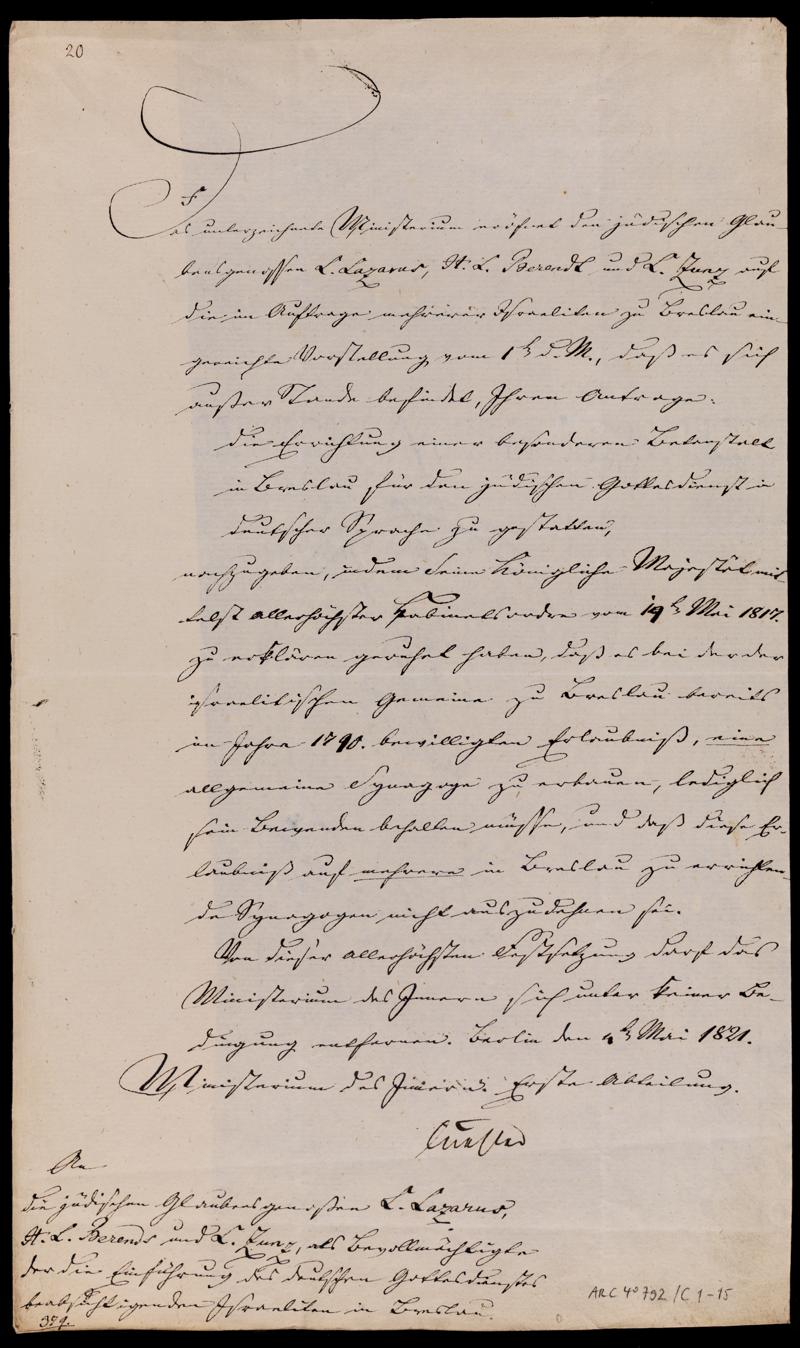 20
Das unterzeichnete Ministerium eröfnet den jüdischen Glau-
bensgenossen L. Lazarus, H. L. Berendt und L. Zunz auf
die im Auftrage mehrerer Israeliten zu Breslau ein-
gereichte Vorstellung vom 1t d. M., daß es sich
außer Stande befindet, Ihrem Antrage:
die Errichtung einer besonderen Betanstalt
in Breslau für den jüdischen Gottesdienst in
deutscher Sprache zu gestatten,
nachzugeben, indem Seine Königliche Majestät mit-
telst allerhöchster Kabinetsordre vom 19t Mai 1817.
zu erklären geruhet haben, daß es bei der der
israelitischen Gemeine zu Breslau bereits
im Jahre 1790. bewilligten Erlaubniß, eine
allgemeine Synagoge zu erbauen, lediglich
sein Bewenden behalten müsse, und daß diese Er-
laubniß auf mehrere in Breslau zu errichten-
de Synagogen nicht auszudehnen sei.
Von dieser allerhöchsten Festsetzung darf das
Ministerium des Innern sich unter keiner Be-
dingung entfernen. Berlin den Mai 1821.
Ministerium des Innern. Erste Abteilung.
An
die jüdischen Glaubensgenoßen L. Lazarus,
H. L. Berends und L. Zunz, als Bevollmächtigte
der die Einführung des deutschen Gottesdienstes
beabsichtigenden Israeliten in Breslau.
ARC 4° 792 / C 1-15